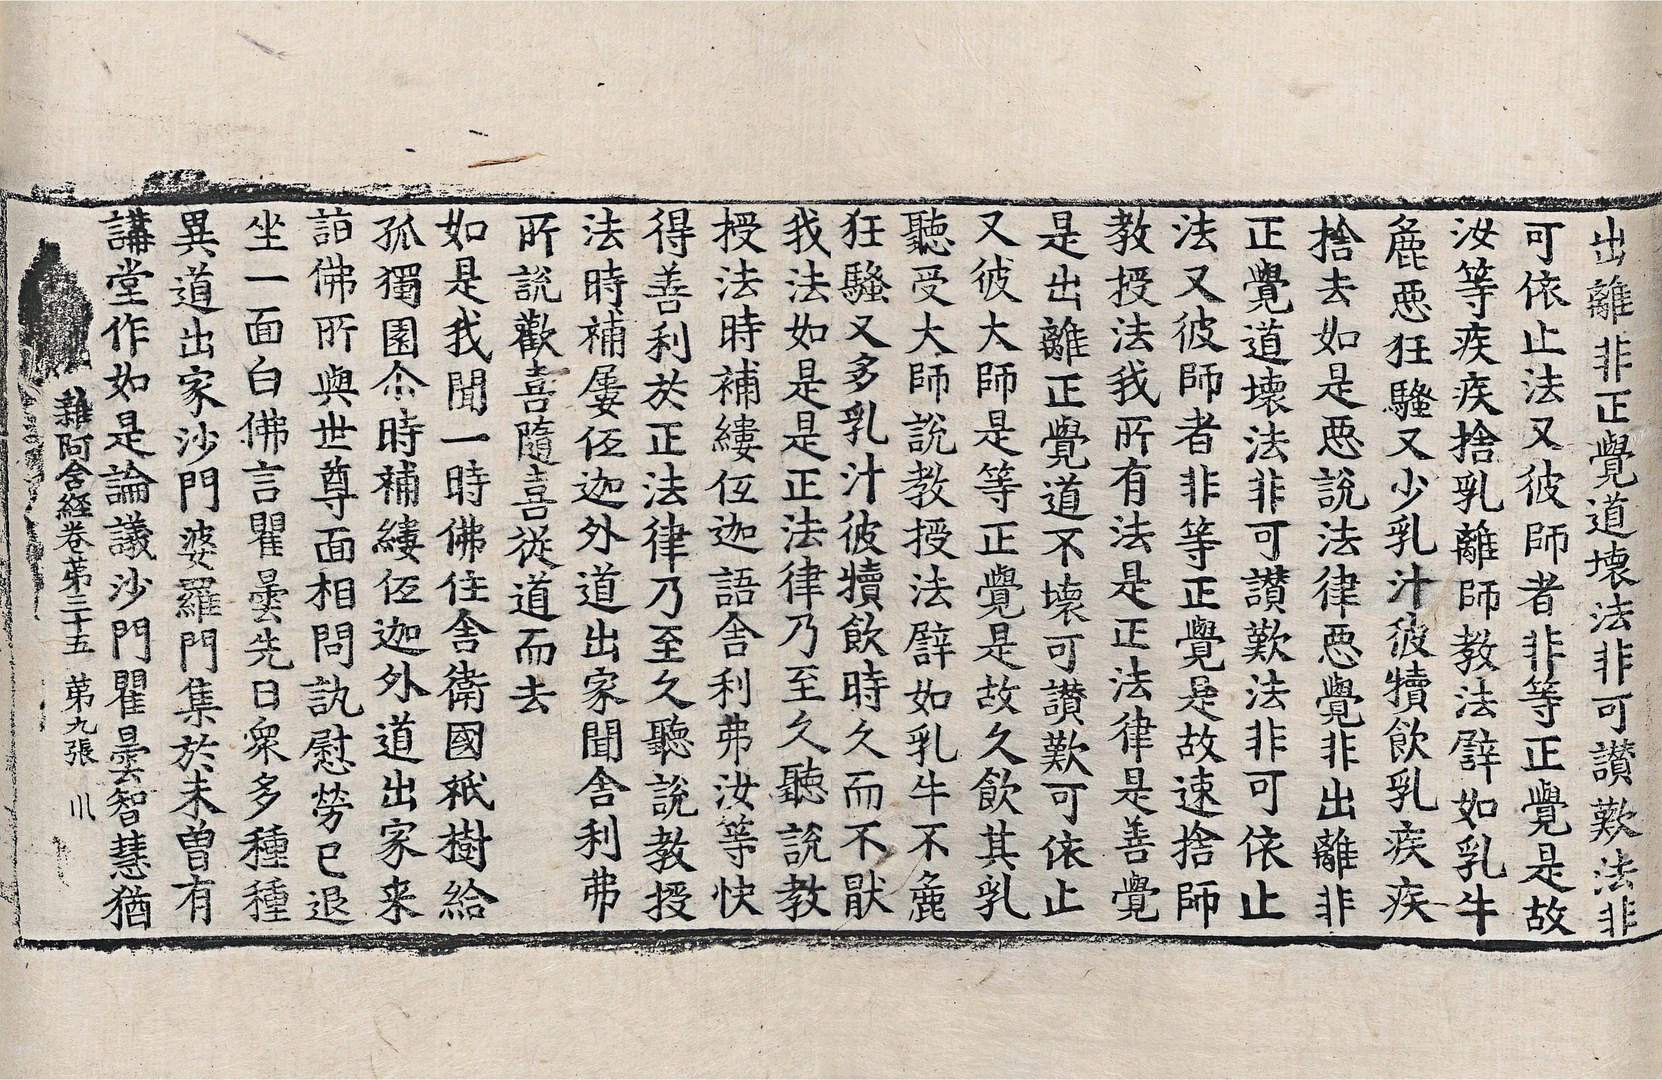 出離非正覺道壞法非可讃歎法非
可依止法又彼師者非等正覺是故
汝等疾疾捨乳離師教法譬如乳牛
麁惡狂騷又少乳汁彼犢飲乳疾疾
捨去如是惡說法律惡覺非出離非
正覺道壞法非可讃歎法非可依止
法又彼師者非等正覺是故速捨師
教授法我所有法是正法律是善覺
是出離正覺道不壞可讃歎可依止
又彼大師是等正覺是故久飲其乳
聽受大師說教授法譬如乳牛不麁
狂騷又多乳汁彼犢飲時久而不猒
我法如是是正法律乃至久聽說教
授法時補縷伍迦語舍利弗汝等快
得善利於正法律乃至久聽說教授
法時補屢伍迦外道出家聞舍利弗
所說歡喜隨喜從道而去
如是我聞一時佛住舍衛國祇樹給
孤獨園尒時補縷伍迦外道出家来
詣佛所與世尊面相問訊慰勞已退
坐一面白佛言瞿曇先日衆多種種
異道出家沙門婆羅門集於未曽有
講堂作如是論議沙門瞿曇智慧猶
雜阿含経卷第三十五 第九張 川